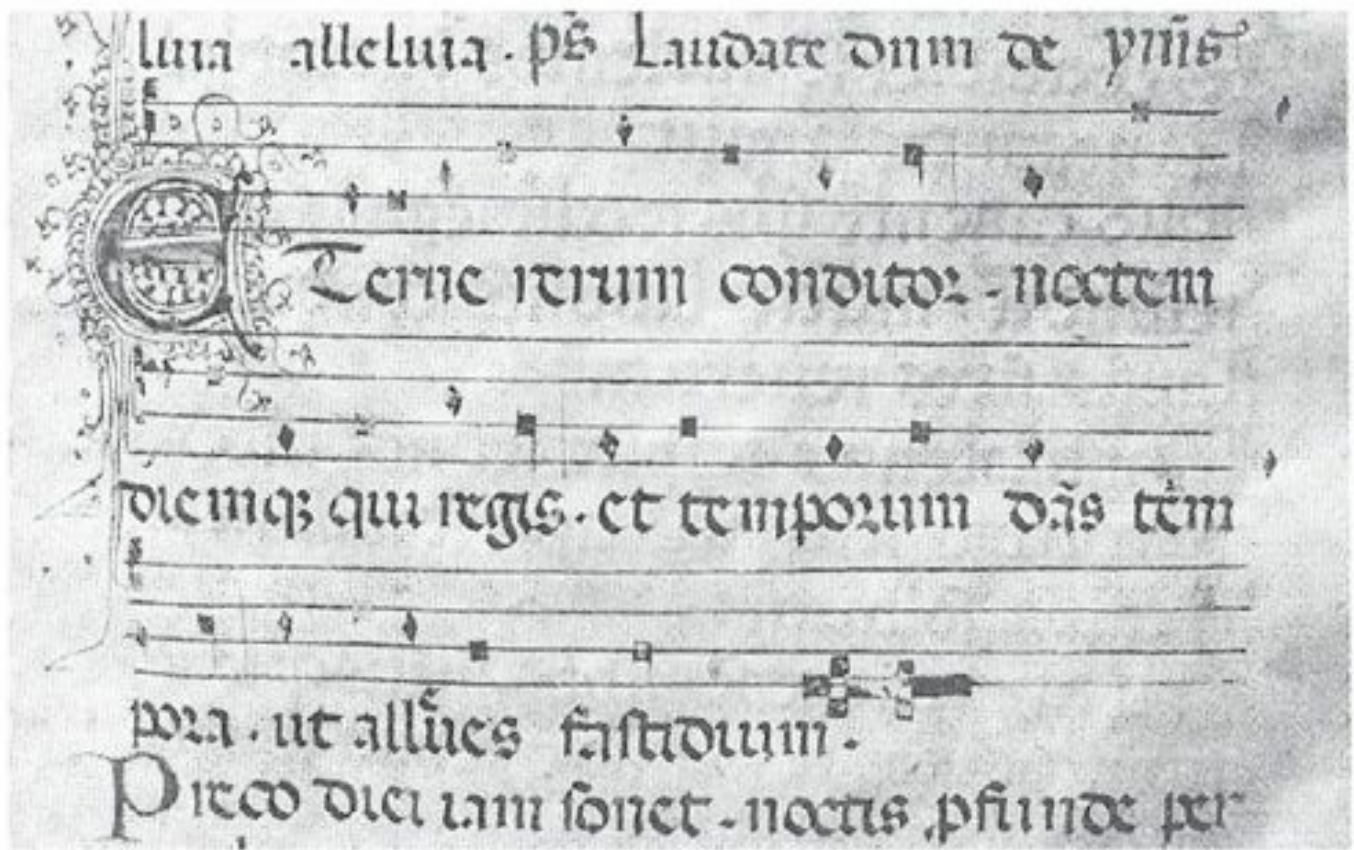 luia alleluia. ps̃ Laudate dnm de
ETerne rerum conditor. noctem
diemqꝫ qui regis. et temporum dãs tẽm
pora. ut allũes fastidium.
Preco diei iam sonet. noctis ꝓfunde per